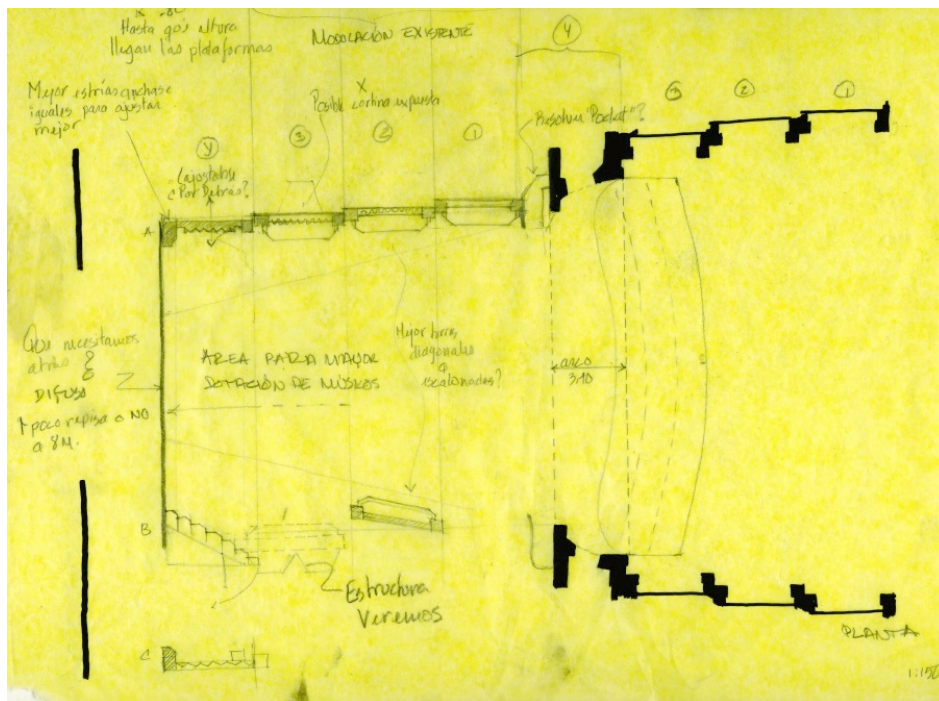 Hasta que altura
llegan las plataformas
MODULACIÓN EXISTENTE
Mejor estrías anchas e
iguales para ajustar
mejor
X
Posible cortina expuesta
4
Resolver "Pocket"?
3
2
1
y
3
2
1
¿Ajustable
¿Por Detras?
A
Que necesitamos
atras
DIFUSO
poco repisa o NO
a 8M.
AREA PARA MAYOR
DOTACIÓN DE MÚSICOS
Mejor
diagonales
o
escalonados?
arco
3.40
B
Estructura
Veremos
C
PLANTA
1:150